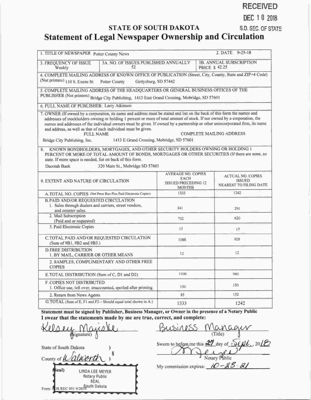 RECEIVED
DEC 10 2018
S.D. SEC. OF STATE
STATE OF SOUTH DAKOTA
Statement of Legal Newspaper Ownership and Circulation
1. TITLE OF NEWSPAPER Potter County News
2. DATE 9-29-18
3. FREQUENCY OF ISSUE
Weekly
3A. NO. OF ISSUES PUBLISHED ANNUALLY
52
3B. ANNUAL SUBSCRIPTION
PRICE $ 42.25
4. COMPLETE MAILING ADDRESS OF KNOWN OFFICE OF PUBLICATION (Street, City, County, State and ZIP+4 Code)
(Not printers) 110 S. Exene St. Potter County Gettysburg, SD 57442
5. COMPLETE MAILING ADDRESS OF THE HEADQUARTERS OR GENERAL BUSINESS OFFICES OF THE
PUBLISHER (Not printers) Bridge City Publishing, 1413 East Grand Crossing, Mobridge, SD 57601
6. FULL NAME OF PUBLISHER: Larry Atkinson
7. OWNER (If owned by a corporation, its name and address must be stated and
FULL NAME COMPLETE MAILING ADDRESS
Bridge City Publishing, Inc. 1413 E Grand Crossing, Mobridge, SD 57601
8. KNOWN BONDHOLDERS, MORTGAGEES, AND OTHER SECURITY HOLDERS OWNING OR HOLDING 1
PERCENT OR MORE OF TOTAL AMOUNT OF BONDS, MORTGAGES OR OTHER SECURITIES (If there are none, so
state. If more space is needed, list on back of this form.
Dacotah Bank 320 Main St., Mobridge SD 57601
9. EXTENT AND NATURE OF CIRCULATION
AVERAGE NO. COPIES
EACH
ISSUED PRECEDING 12
MONTHS
ACTUAL NO. COPIES
ISSUED
NEAREST TO FILING DATE
A. TOTAL NO. COPIES 1333 1242
B. PAID AND/OR REQUESTED CIRCULATION
1. Sales through dealers and carriers, street vendors,
and counter sales. 341 291
2. Mail Subscription
(Paid and or requested)
3. Paid Electronic Copies
C. TOTAL PAID AND/OR REQUESTED CIRCULATION
(Sum of 9B1, 9B2 and 9B3.)
D. FREE DISTRIBUTION
1. BY MAIL, CARRIER OR OTHER MEANS 12 12
2. SAMPLES, COMPLIMENTARY AND OTHER FREE
COPIES
E. TOTAL DISTRIBUTION (Sum of C, D1 and D2)
F. COPIES NOT DISTRIBUTED
1. Office use, left over, unaccounted, spoiled after printing
2. Return from News Agents
G. TOTAL (Sum of E, F1 and F2 - Should equal total shown in A.) 1333 1242
Statement must be signed by Publisher, Business Manager, or Owner in the presence of a Notary Public
I swear that the statements made by me are true, correct, and complete:
Business Manager
(Signature) (Title)
State of South Dakota
County of Walworth
Sworn to before me this 29 day of Sept, 2018
Notary Public
My commission expires: 10-25-21
(Seal)
LINDA LEE MEYER
Notary Public
SEAL
South Dakota